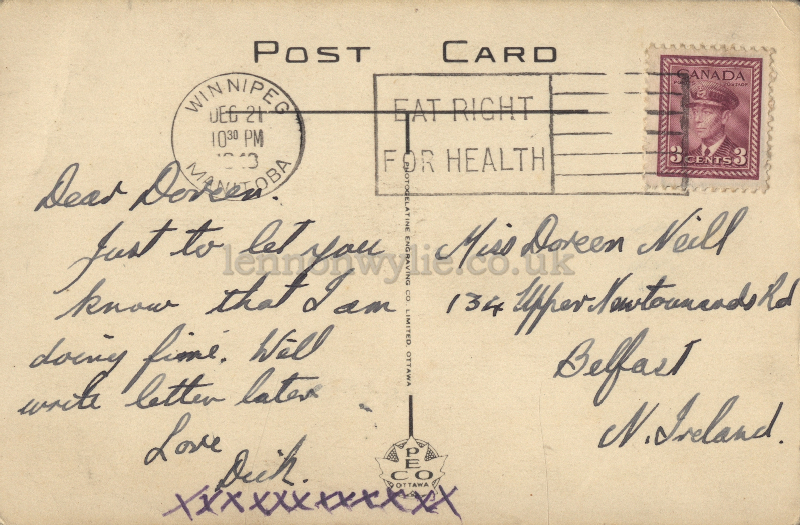 POST CARD
WINNIPEG
DEC 21
10 30 PM
1943
MANITOBA
EAT RIGHT
FOR HEALTH
CANADA
3 CENTS 3
Dear Doreen.
Just to let you
know that I am
doing fime. Will
write letter later
Love
Dick.
xxxxxxxxxxxx
PHOTOGELATINE ENGRAVING CO. LIMITED, OTTAWA
PECO
OTTAWA
Miss Doreen Neill
134 Upper Newtownards Rd
Belfast
N. Ireland.
lennonwylie.co.uk